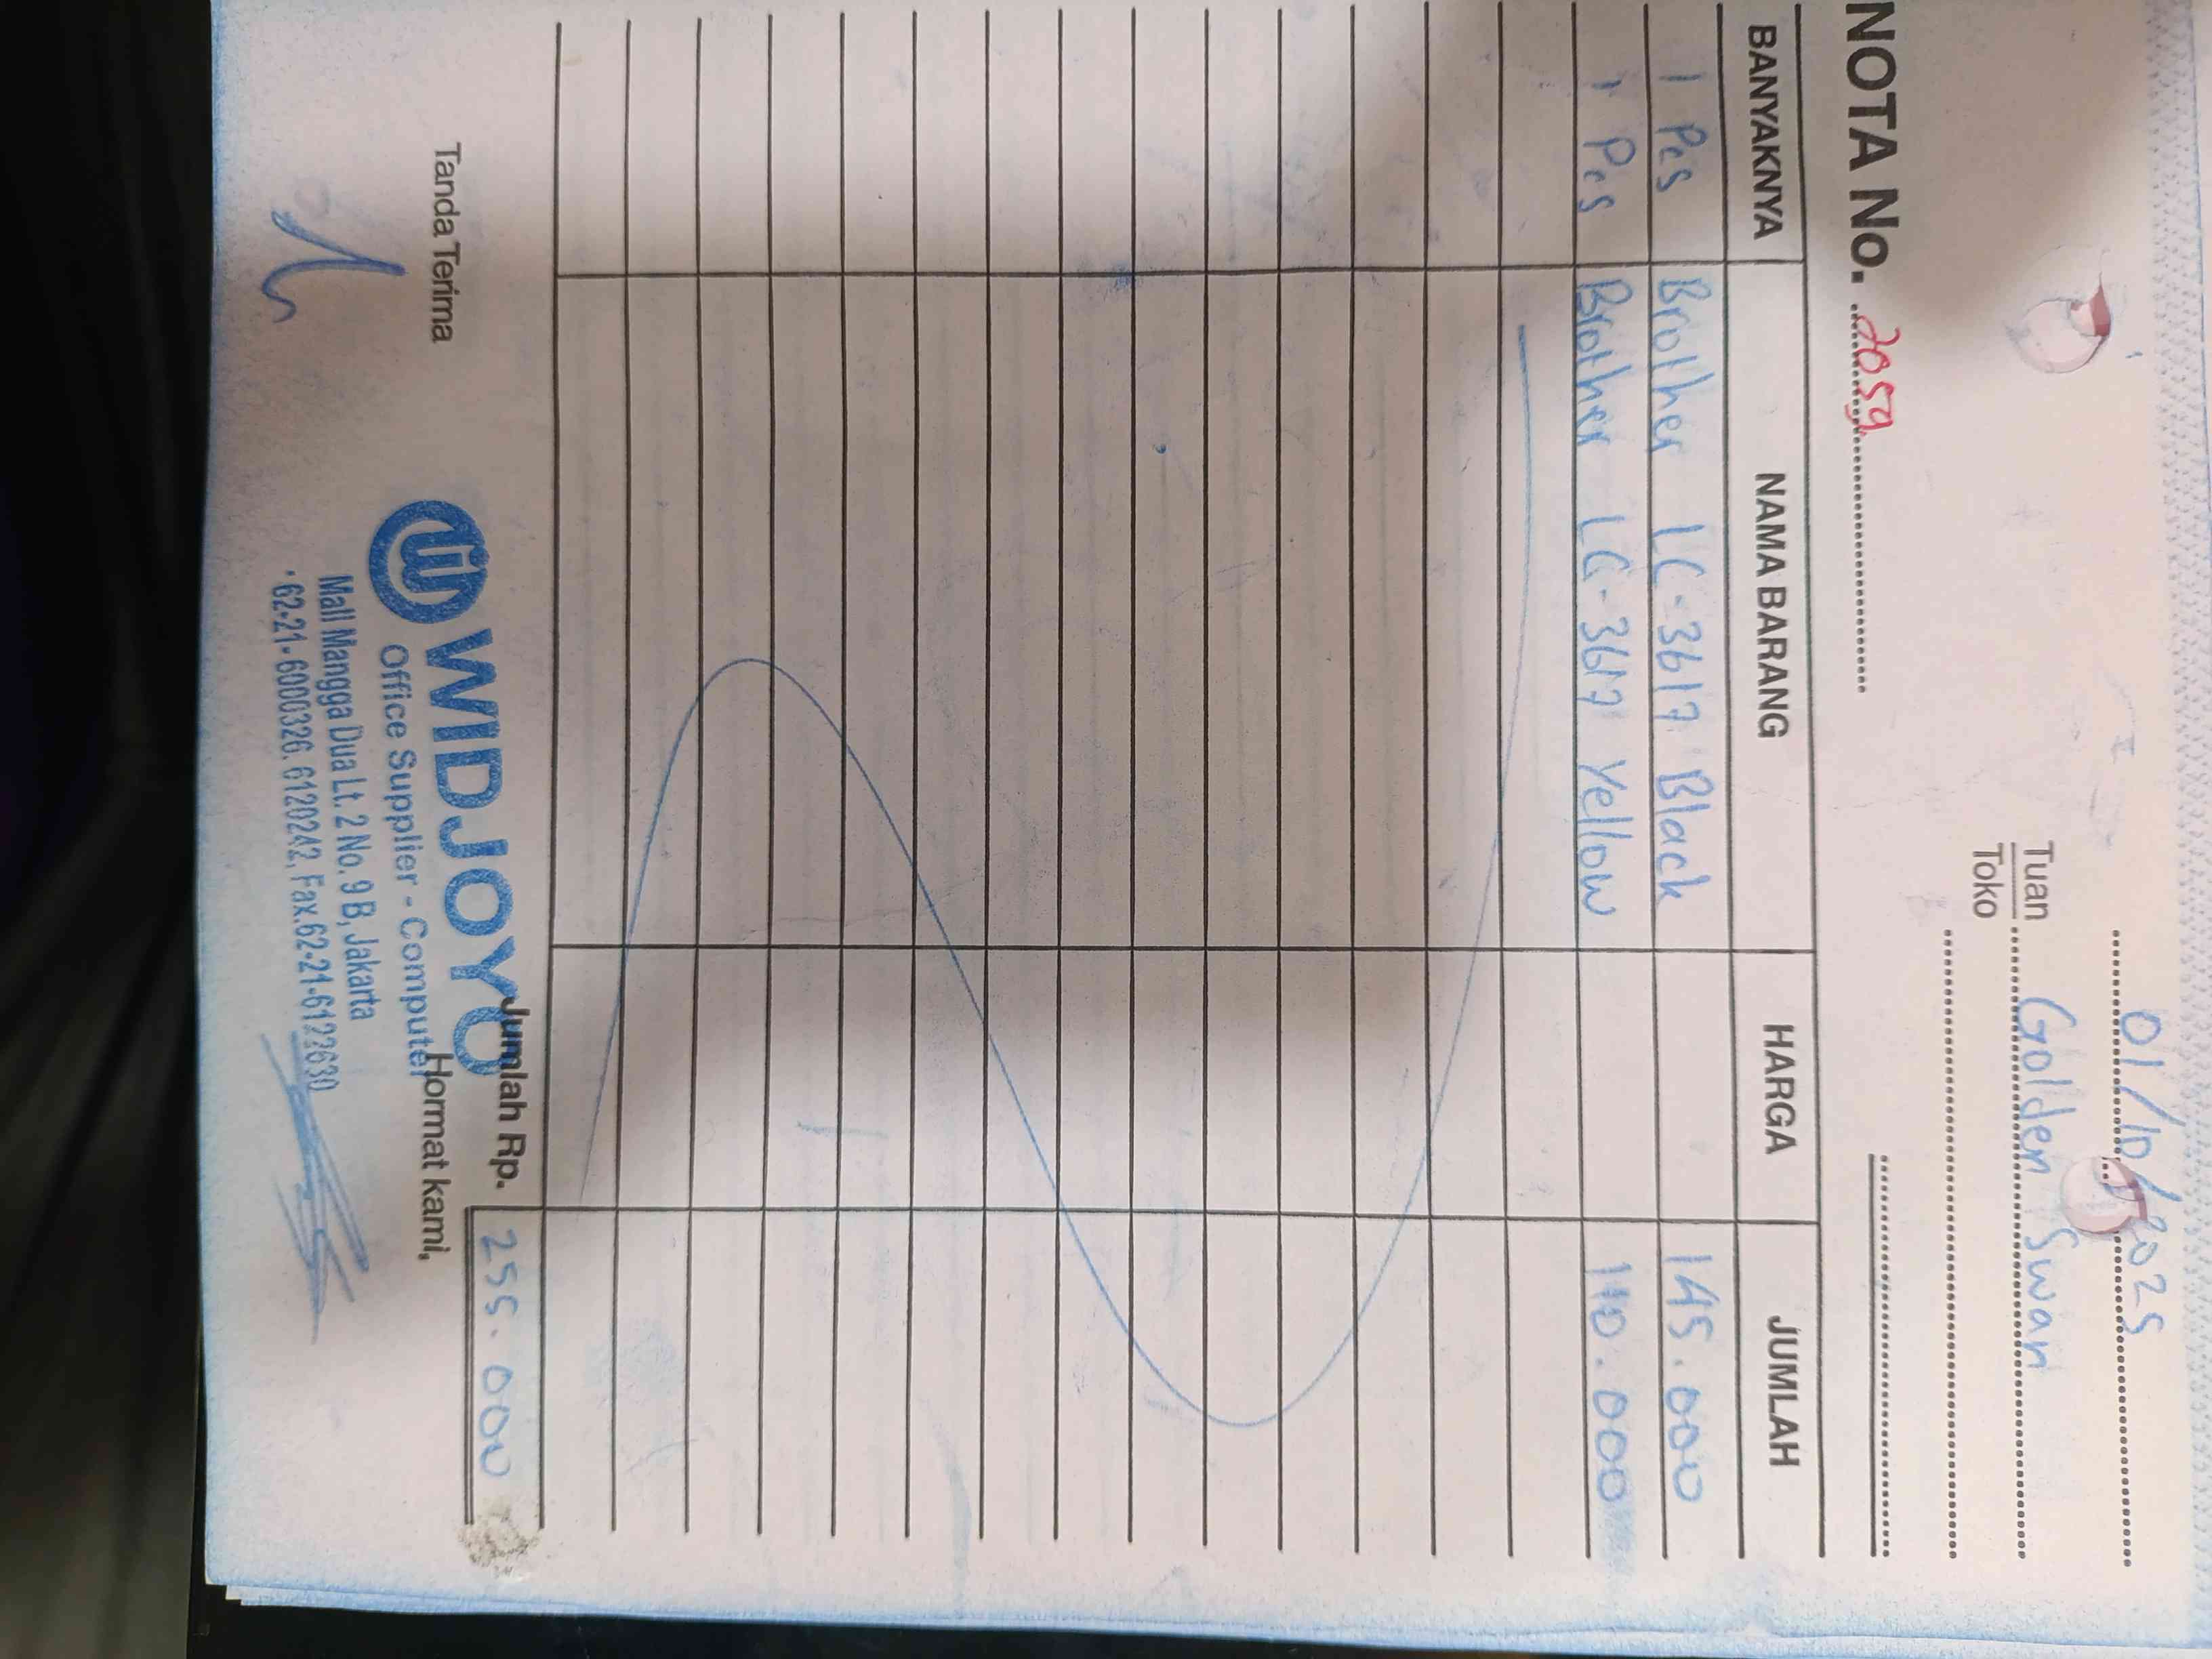 01/10/2025
Tuan Golden Swan
Toko
NOTA No. 2059
BANYAKNYA NAMA BARANG HARGA JUMLAH
1 Pcs Brother LC-3617 Black 145.000
1 Pcs Brother LC-3617 Yellow 110.000
Jumlah Rp. 255.000
Tanda Terima Hormat kami,
WIDJOYO
Office Supplier - Computer
Mall Mangga Dua Lt. 2 No. 9 B, Jakarta
62-21-6000326. 6120242, Fax.62-21-6122630